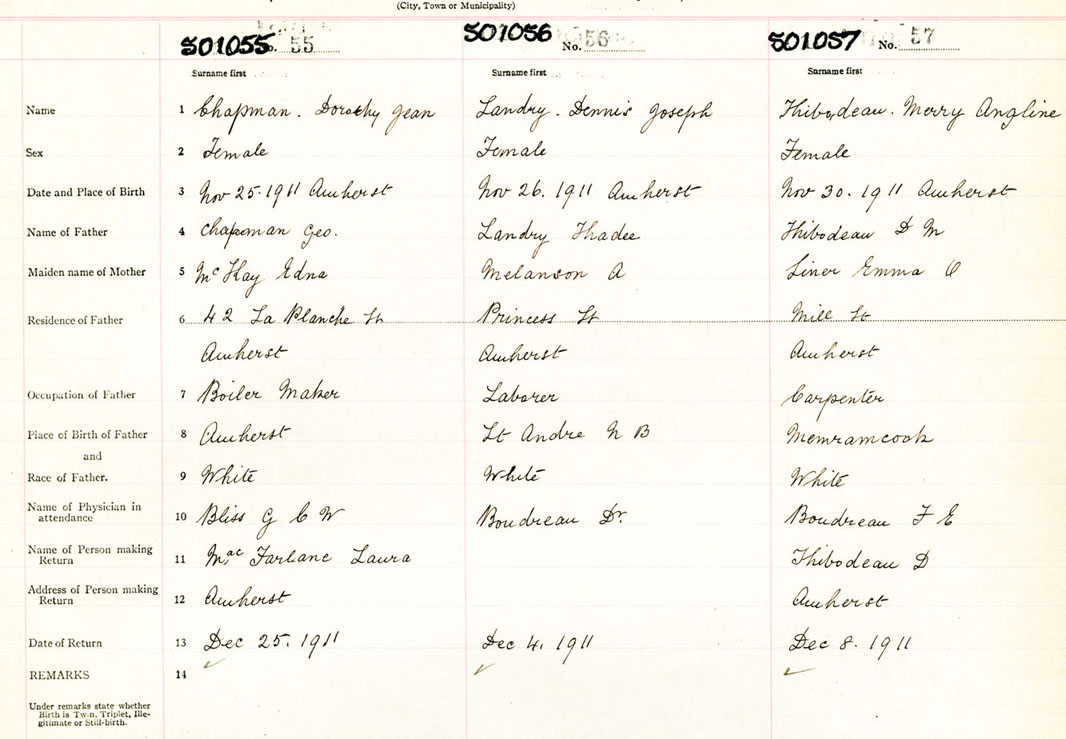 (City, Town or Municipality)
501055 No. 55 501056 No. 56 501057 No. 57
Surname first Surname first Surname first
Name 1 Chapman. Dorothy Jean Landry. Dennis Joseph Thibodeau. Merry Angline
Sex 2 Female Female Female
Date and Place of Birth 3 Nov 25. 1911 Amherst Nov 26. 1911 Amherst Nov 30. 1911 Amherst
Name of Father 4 Chapman Geo. Landry Thadee Thibodeau D M
Maiden name of Mother 5 McKay Edna Melanson A Liner Emma O
Residence of Father 6 42 La Planche St Princess St Mill St
Amherst Amherst Amherst
Occupation of Father 7 Boiler Maker Laborer Carpenter
Place of Birth of Father 8 Amherst St Andre N B Memramcook
and
Race of Father. 9 White White White
Name of Physician in
attendance 10 Bliss G C W Boudreau Dr. Boudreau F E
Name of Person making
Return 11 MacFarlane Laura Thibodeau D
Address of Person making
Return 12 Amherst Amherst
Date of Return 13 Dec 25. 1911 Dec 4. 1911 Dec 8. 1911
REMARKS 14
Under remarks state whether
Birth is Twin, Triplet, Ille-
gitimate or Still-birth.